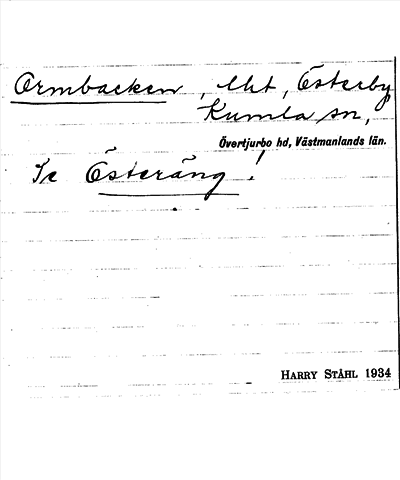 Ormbacken, lht, Österby
Kumla sn,
Övertjurbo hd, Västmanlands län.
Se Österäng!
HARRY STÅHL 1934